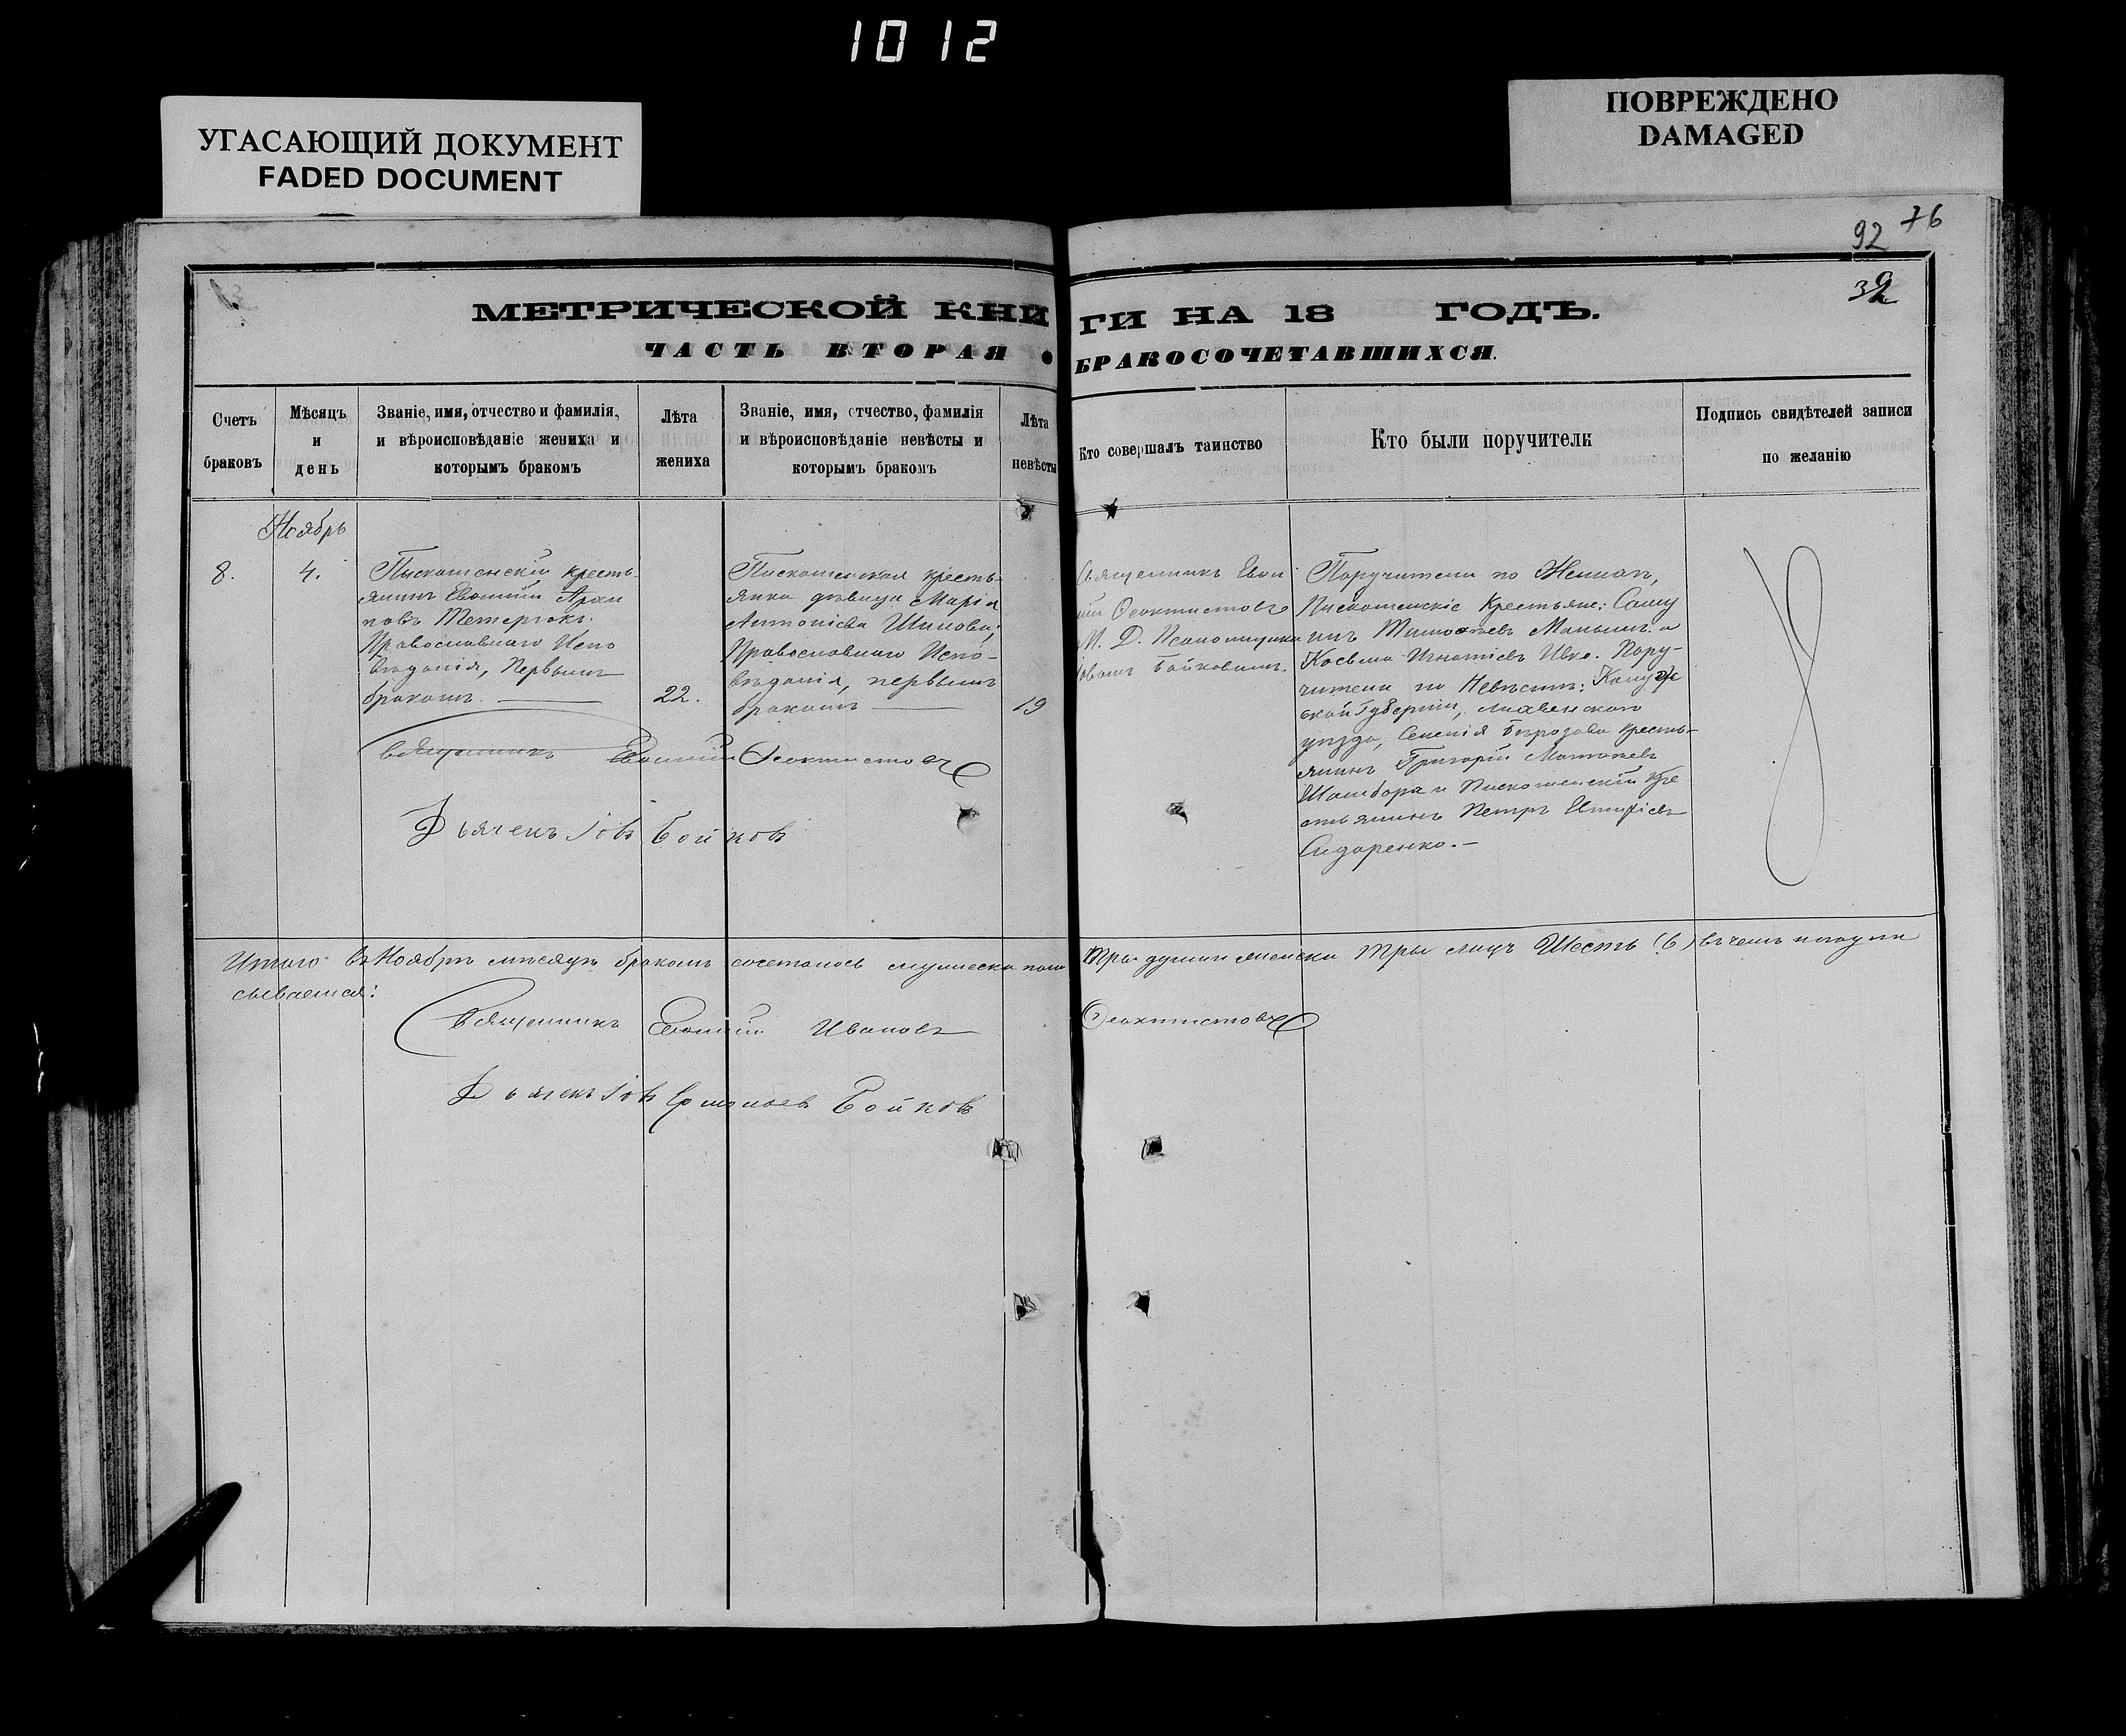 1012
УГАСАЮЩИЙ ДОКУМЕНТ
FADED DOCUMENT
ПОВРЕЖДЕНО
DAMAGED
92 76
39
МЕТРИЧЕСКОЙ КНИГИ НА 18 ГОДЪ.
ЧАСТЬ ВТОРАЯ • БРАКОСОЧЕТАВШИХСЯ.
Счетъ
браковъ
Мѣсяцъ
и
день
Званіе, имя, отчество и фамилія,
и вѣроисповѣданіе жениха и
которымъ бракомъ
Лѣта
жениха
Званіе, имя, отчество, фамилія
и вѣроисповѣданіе невѣсты и
которымъ бракомъ
Лѣта
невѣсты
Кто совершалъ таинство
Кто были поручители
Подпись свидѣтелей записи
по желанію
Ноябрь
8.
4.
Пискошенскій кресть-
янинъ Евѳимій
Тетерюкъ.
Православнаго Испо
вѣданія, Первымъ
бракомъ.
22.
Пискошенская кресть-
янка дѣвица Марія
Антоніева Шилова;
Православнаго Испо-
вѣданія, первымъ
бракомъ
19
Священникъ Евѳи
мій Ѳеоктистовъ
И. Д. Псаломщика
Іовомъ Байковымъ.
Поручители по Женихѣ,
Пискошенскіе Крестьяне:
Тимоѳеевъ и
Косьма Игнатіевъ Ивко. Пору-
чители по Невѣстѣ: Калуж
ской Губерніи,
уѣзда, Селенія кресть-
янинъ Григорій Матѳеевъ
и Пискошенскій Кре
стьянинъ Петръ
Сидоренко.-
Священникъ Евѳимій Ѳеоктистовъ
Дьячекъ Іовъ Бойковъ
Итого въ Ноябрѣ мѣсяцѣ бракомъ сочеталось мужеска пола три души женска три лицъ Шесть (6) въ чемъ и подпи
сывается:
Священникъ Евѳимій Ивановъ Ѳеоктистовъ
Дьячекъ Іовъ Бойковъ